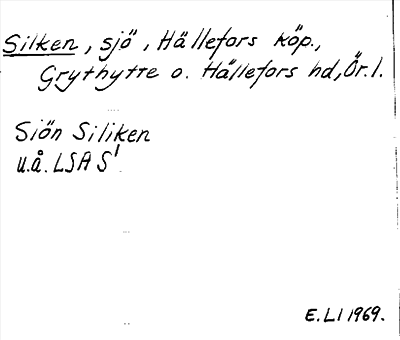 Silken, sjö, Hällefors köp.,
Grythytte o. Hällefors hd, Ör. l.
Siön Siliken
u.å. LSA S1
E.LI 1969.